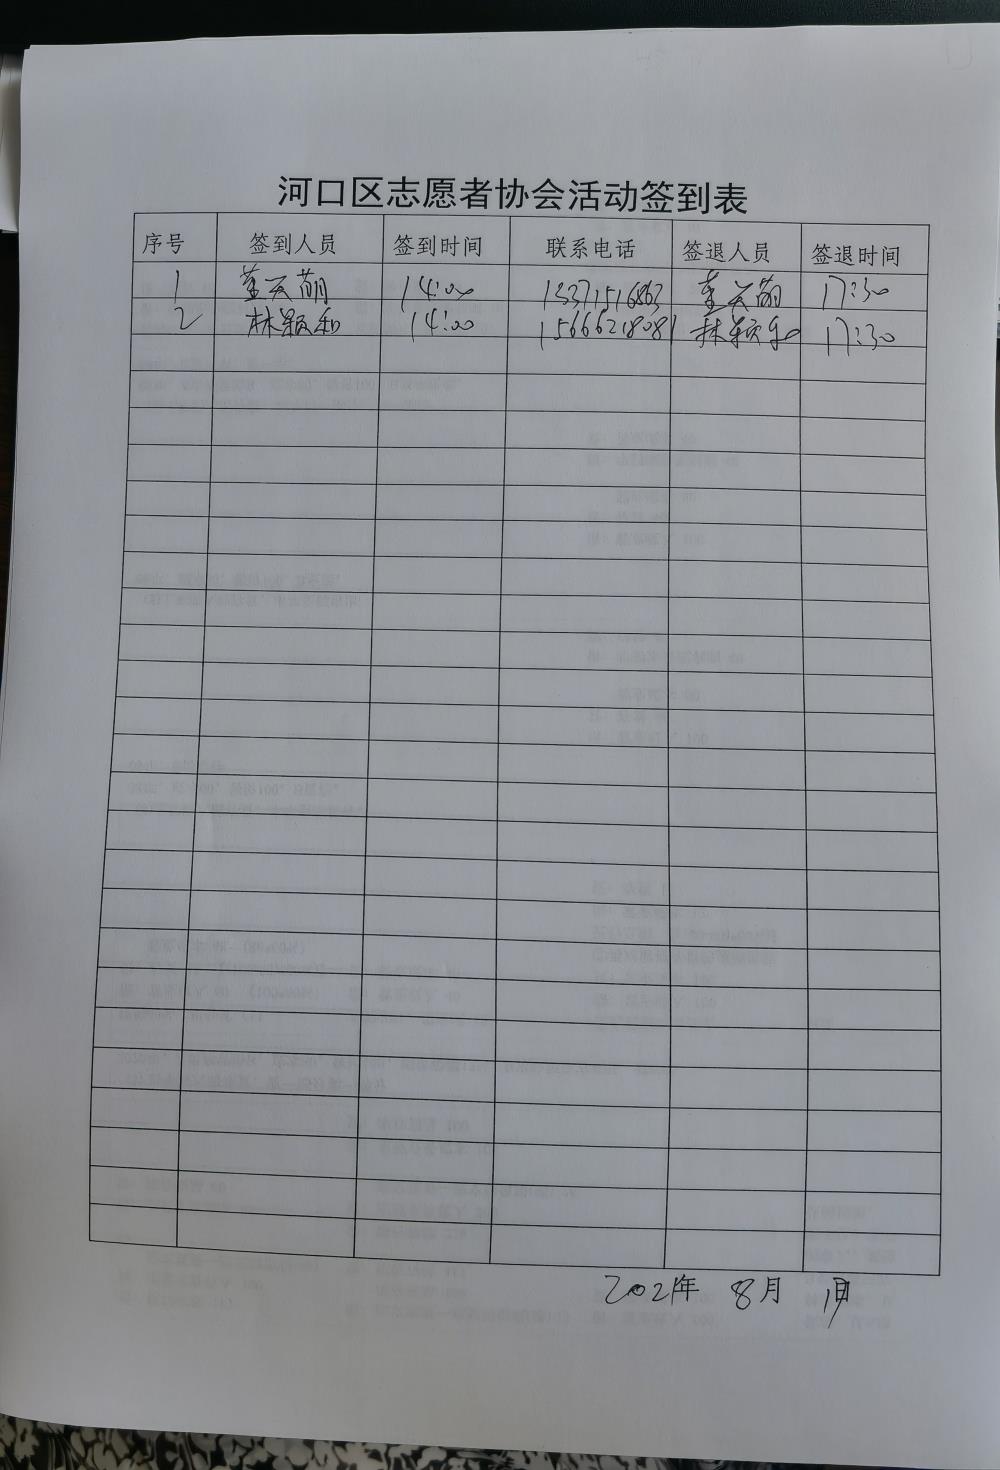 河口区志愿者协会活动签到表
序号 签到人员 签到时间 联系电话 签退人员 签退时间
1 董云萌 14:00 13371516863 董云萌 17:30
2 林颖和 14:00 15666218081 林颖和 17:30
2021年 8月 1日